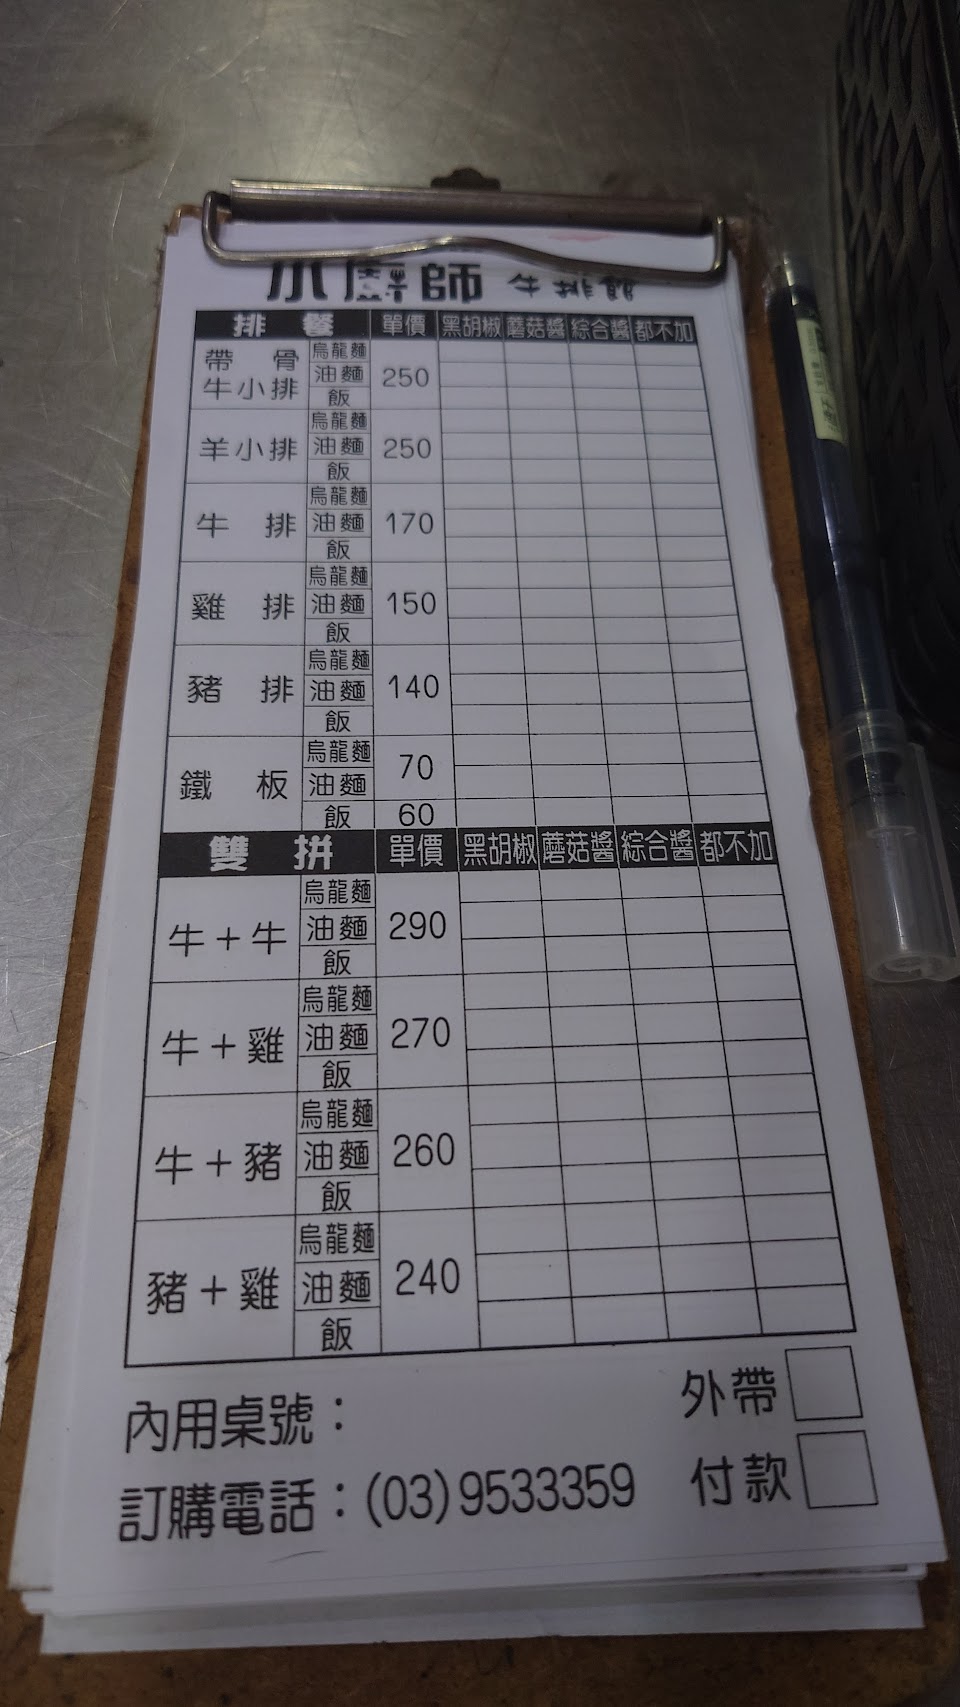 師 牛排館
排餐 單價 黑胡椒 蘑菇醬 綜合醬 都不加
帶骨牛小排 烏龍麵 油麵 飯 250
羊小排 烏龍麵 油麵 飯 250
牛排 烏龍麵 油麵 飯 170
雞排 烏龍麵 油麵 飯 150
豬排 烏龍麵 油麵 飯 140
鐵板 烏龍麵 油麵 70
飯 60
雙拼 單價 黑胡椒 蘑菇醬 綜合醬 都不加
牛+牛 烏龍麵 油麵 飯 290
牛+雞 烏龍麵 油麵 飯 270
牛+豬 烏龍麵 油麵 飯 260
豬+雞 烏龍麵 油麵 飯 240
內用桌號： 外帶
訂購電話：(03)9533359 付款